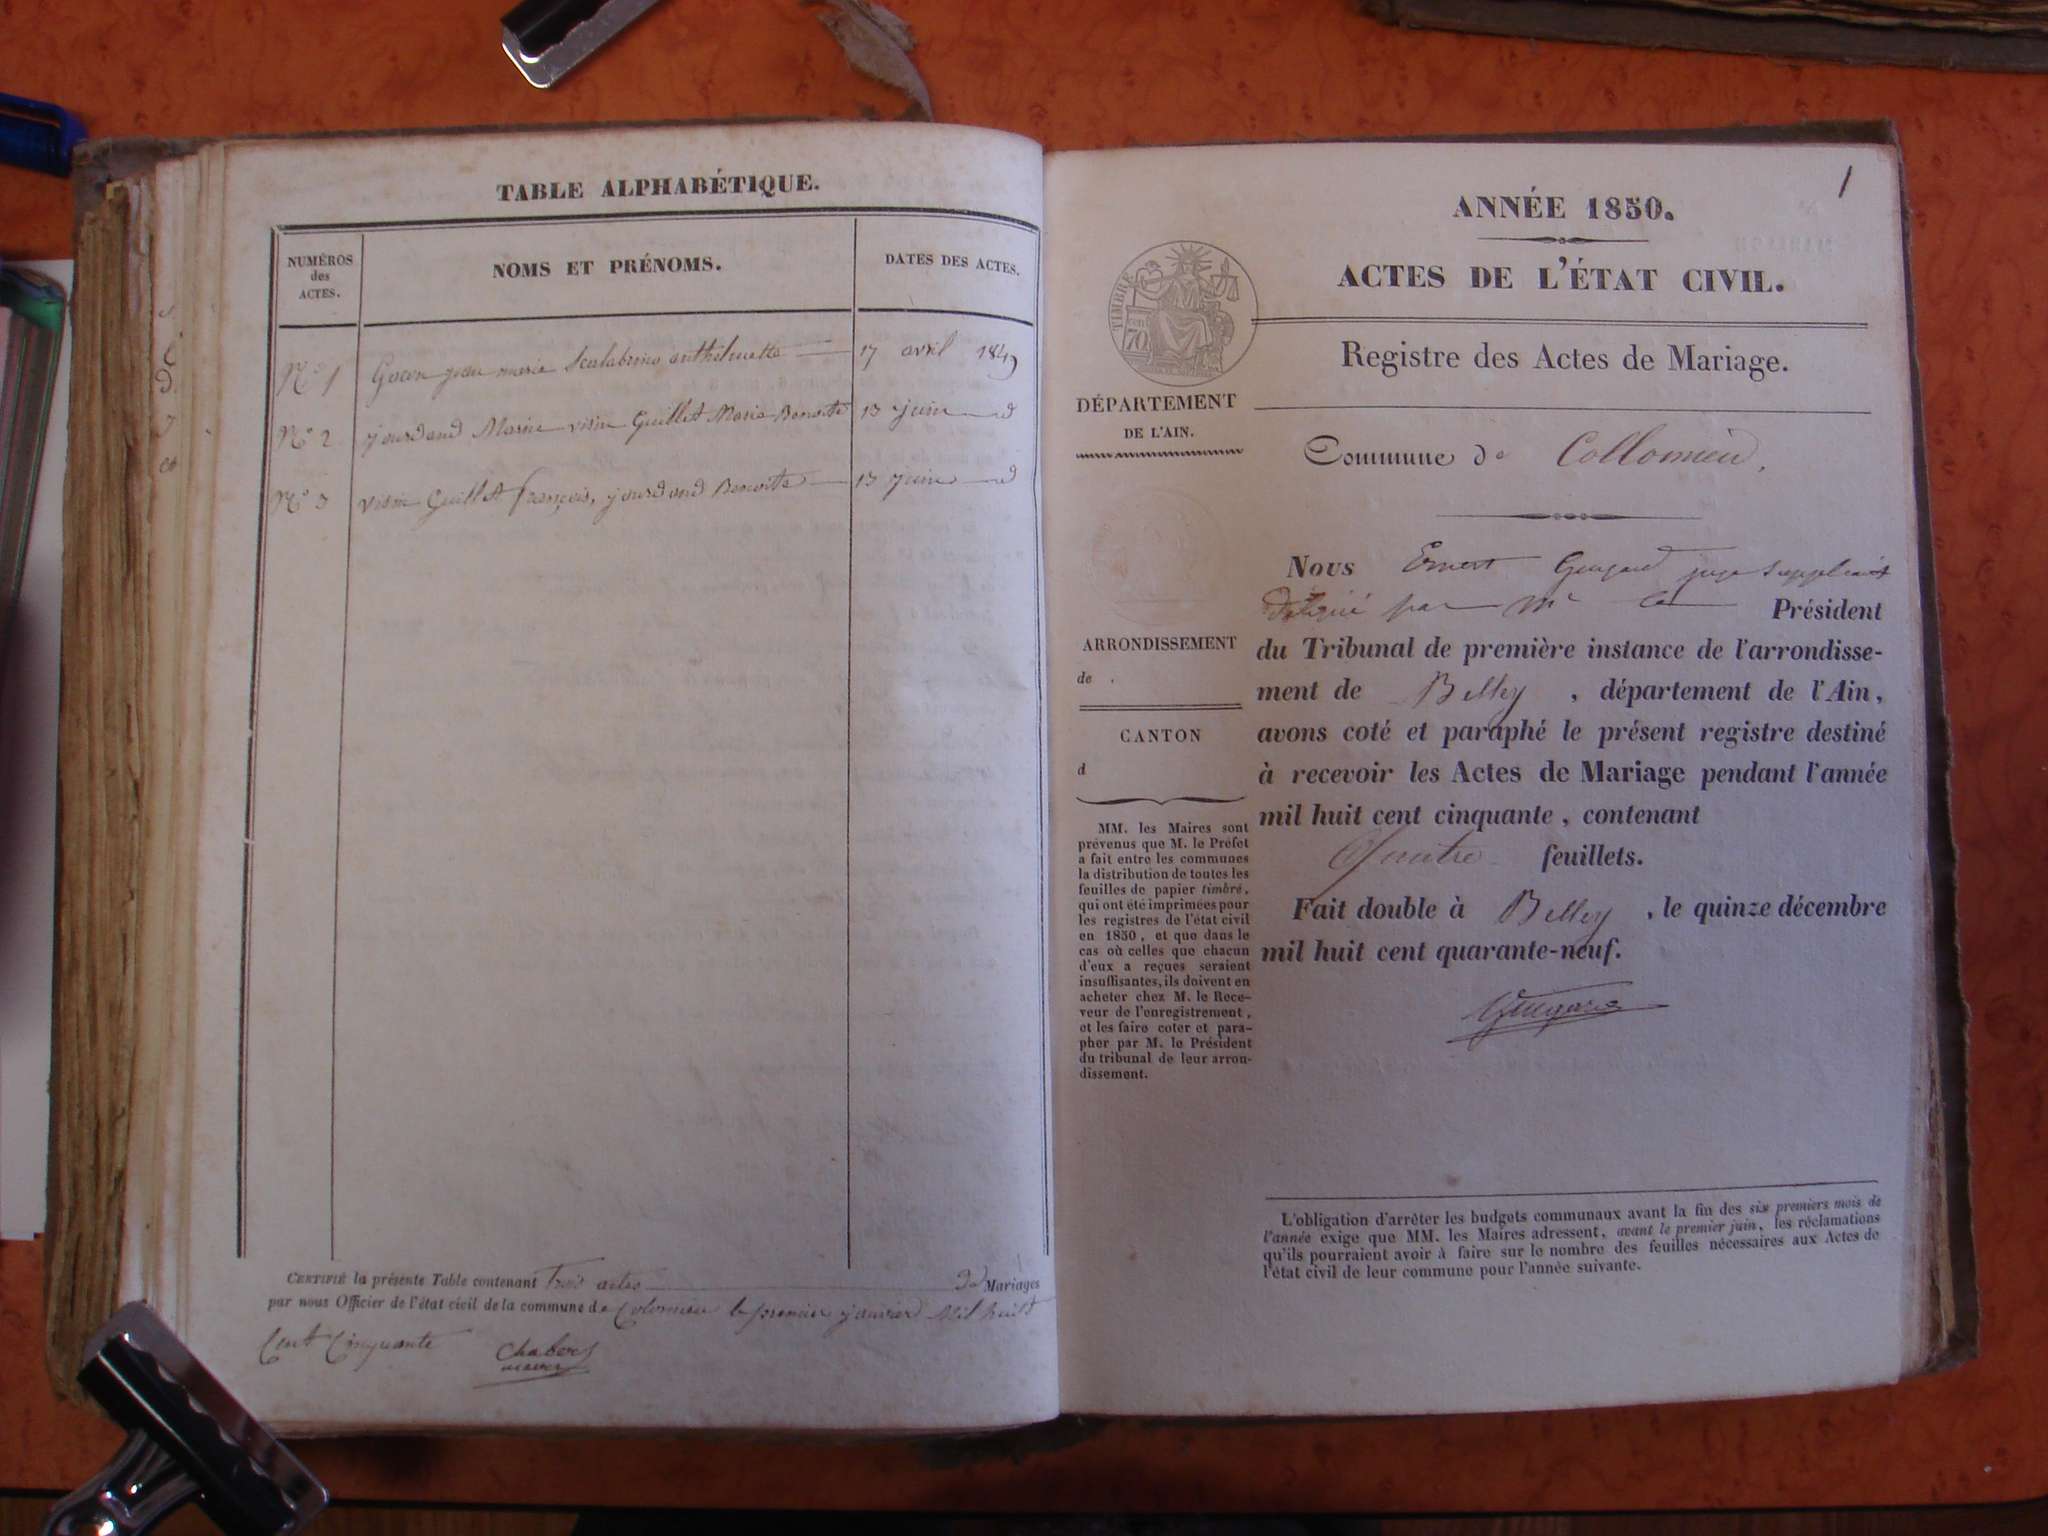 TABLE ALPHABÉTIQUE.
NUMÉROS
des
ACTES.
NOMS ET PRÉNOMS.
DATES DES ACTES.
N° 1 jean marie Scalabrino anthelmette 17 avril 1849
N° 2 jourdand Marin visin Guillet Marie Benoite 13 juin d
N° 3 visin Guillet françois, jourdand Benoite 13 juin d
CERTIFIÉ la présente Table contenant trois actes de Mariages
par nous Officier de l'état civil de la commune de Colomieu le premier janvier Mil huit
Cent Cinquante
Chabert
maire
1
ANNÉE 1850.
ACTES DE L'ÉTAT CIVIL.
Registre des Actes de Mariage.
TIMBRE
70
DÉPARTEMENT
DE L'AIN.
Commune de Collomieu,
Nous Ernest juge suppléant
délégué par Mr le Président
du Tribunal de première instance de l'arrondisse-
ment de Belley, département de l'Ain,
avons coté et paraphé le présent registre destiné
à recevoir les Actes de Mariage pendant l'année
mil huit cent cinquante, contenant
Quatre feuillets.
Fait double à Belley, le quinze décembre
mil huit cent quarante-neuf.
ARRONDISSEMENT
de .
CANTON
d
MM. les Maires sont
prévenus que M. le Préfet
a fait entre les communes
la distribution de toutes les
feuilles de papier timbré,
qui ont été imprimées pour
les registres de l'état civil
en 1850, et que dans le
cas où celles que chacun
d'eux a reçues seraient
insuffisantes, ils doivent en
acheter chez M. le Rece-
veur de l'enregistrement,
et les faire coter et para-
pher par M. le Président
du tribunal de leur arron-
dissement.
L'obligation d'arrêter les budgets communaux avant la fin des six premiers mois de
l'année exige que MM. les Maires adressent, avant le premier juin, les réclamations
qu'ils pourraient avoir à faire sur le nombre des feuilles nécessaires aux Actes de
l'état civil de leur commune pour l'année suivante.